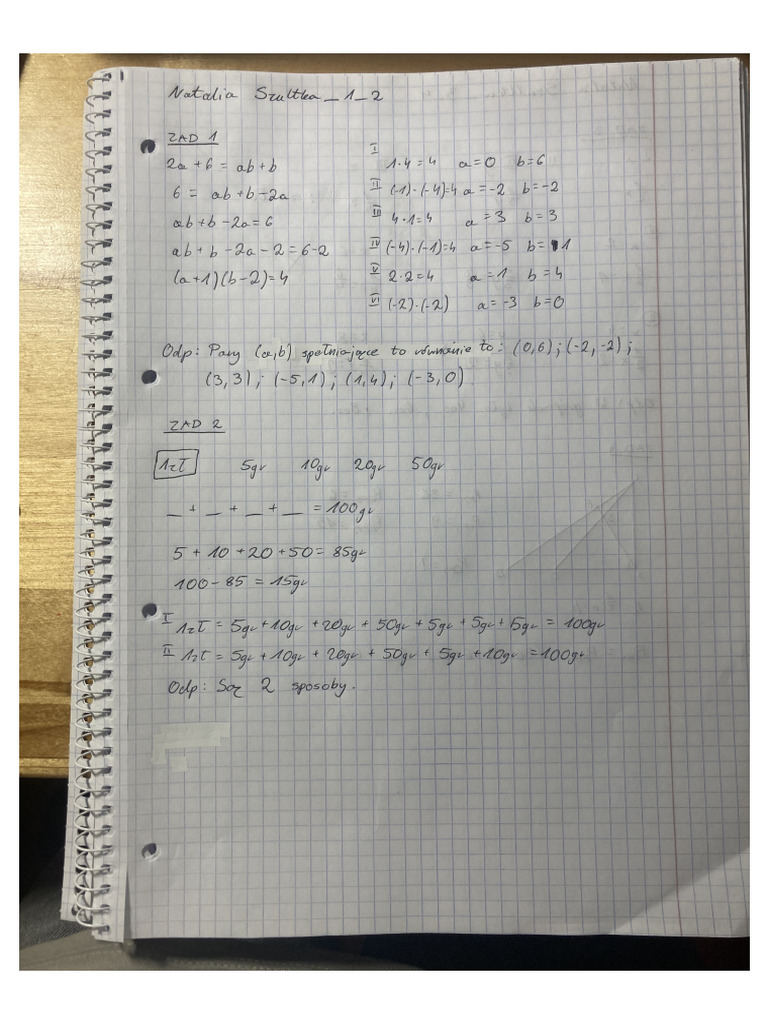 Natalia Szultka_1_2
ZAD 1
2a + 6 = ab + b
6 = ab + b - 2a
ab + b - 2a = 6
ab + b - 2a - 2 = 6-2
(a+1)(b-2) = 4
I 1·4 = 4 a=0 b=6
II (-1)·(-4)=4 a=-2 b=-2
III 4·1=4 a=3 b=3
IV (-4)·(-1)=4 a=-5 b=1
V 2·2=4 a=1 b=4
VI (-2)·(-2) a=-3 b=0
Odp: Pary (a,b) spełniające to równanie to: (0,6); (-2,-2);
(3,3); (-5,1); (1,4); (-3,0)
ZAD 2
1zł 5gr 10gr 20gr 50gr
_ + _ + _ + _ = 100gr
5 + 10 + 20 + 50 = 85gr
100 - 85 = 15gr
I 1zł = 5gr + 10gr + 20gr + 50gr + 5gr + 5gr + 5gr = 100gr
II 1zł = 5gr + 10gr + 20gr + 50gr + 5gr + 10gr = 100gr
Odp: Są 2 sposoby.